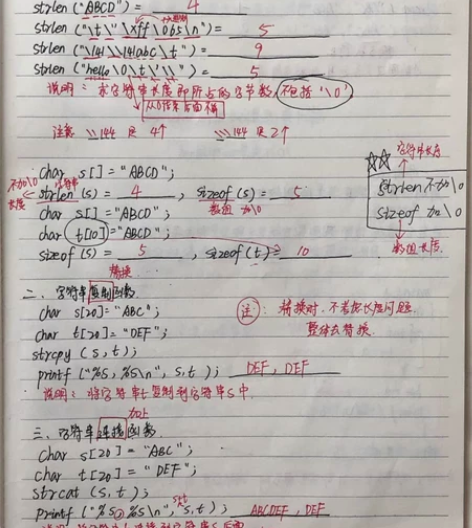 strlen ("ABCD") = 4
strlen ("\t\"\xff\065\n") = 5
strlen ("\\141\\141abc\t") = 9
strlen ("hello\0\t\'\\") = 5
说明: 求字符串长度即所占的字节数, 不包括 '\0'
从0结束后面不算
注意 \\144 是 4个 \\\144 是 2个
char s[] = "ABCD";
不加\0 字符串 长度
字符串长度
strlen (s) = 4 , sizeof (s) = 5
数组 加\0
☆☆
strlen 不加\0
sizeof 加\0
数组长度.
char s[] = "ABCD";
char t[10] = "ABCD";
sizeof (s) = 5 , sizeof (t) = 10
替换
二、字符串复制函数
char s[20] = "ABC";
注: 替换时, 不考虑长度问题
char t[20] = "DEF";
整体去替换.
strcpy (s, t);
printf ("%s, %s\n", s, t); DEF, DEF
说明: 将字符串t复制到字符串s中.
加上
三、字符串连接函数.
char s[20] = "ABC";
char t[20] = "DEF";
strcat (s, t);
printf ("%s, %s\n", s, t); ABCDEF, DEF